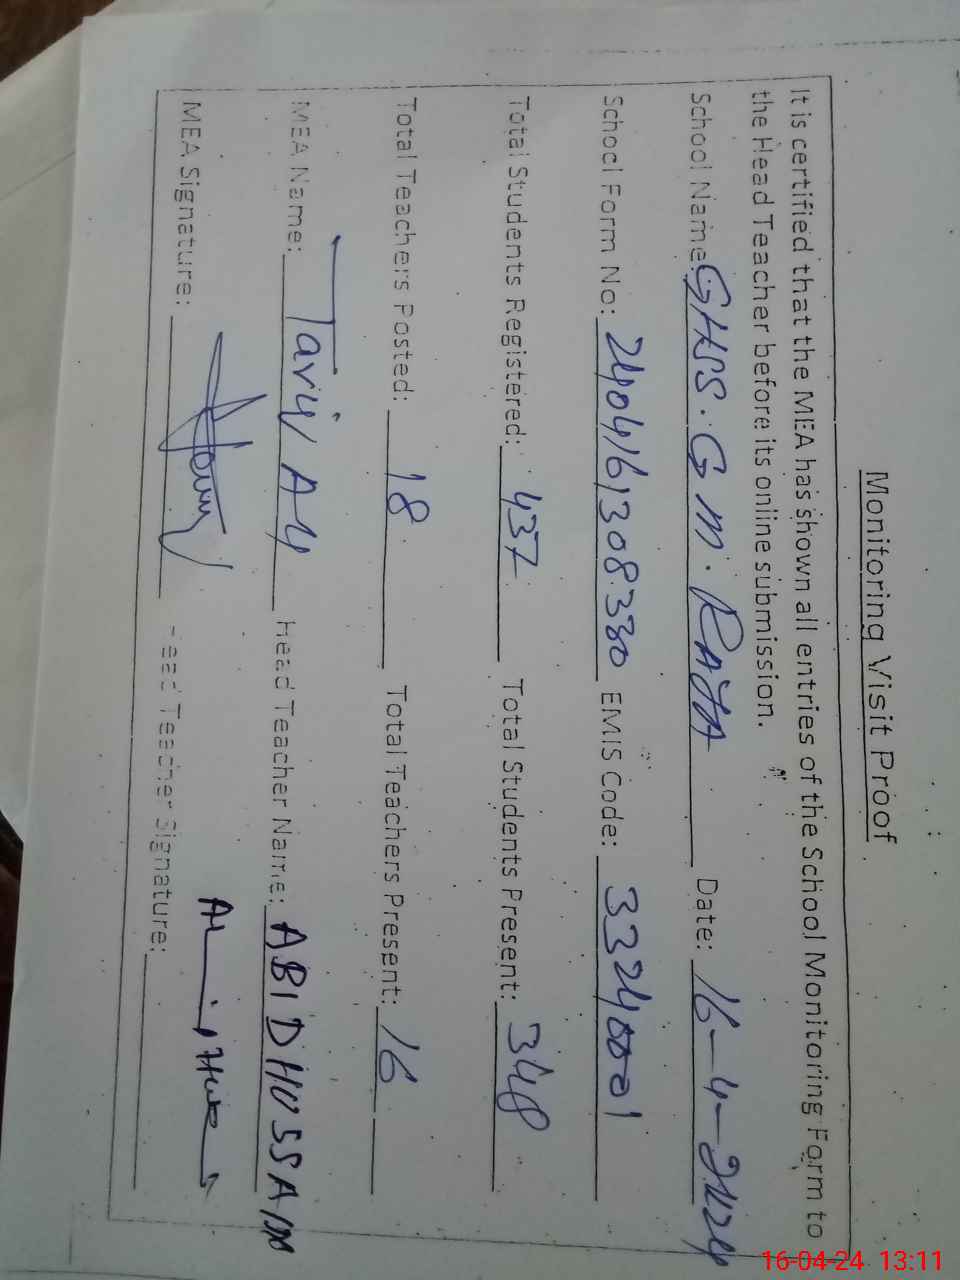 Monitoring Visit Proof
It is certified that the MEA has shown all entries of the School Monitoring Form to
the Head Teacher before its online submission.
School Name: GHSS. G M. RAJA Date: 16-4-2024
School Form No: 2404161308330 EMIS Code: 33240001
Total Students Registered: 437 Total Students Present: 348
Total Teachers Posted: 18 Total Teachers Present: 16
MEA Name: Tariq Ali Head Teacher Name: ABID HUSSAIN
MEA Signature: Head Teacher Signature:
16-04-24 13:11